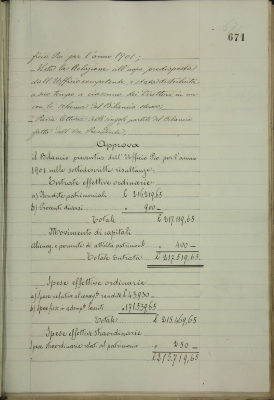 671
ficio Pio per l'anno 1901;
- Letta la Relazione all'uopo predisposta
dall'Ufficio competente, e stata distribuita
a suo tempo a ciascuno dei Direttori in
con lo schema del Bilancio stesso;
- Previa lettura delle singole partite del Bilancio
fatta dall' Presidente;
Approva
il Bilancio preventivo dell'Ufficio Pio per l'anno
1901 nelle sottodescritte risultanze:
Entrate effettive ordinarie
a) Rendite patrimoniali £ 216219,65
b) Proventi diversi " 900 —
Totale £ 217,119,65
Movimento di capitale
Alienaz. e permute di attività patrimoni. " 400 —
Totale Entrata £ 217,519,65
Spese effettive ordinarie
a) Spese relative al conseg.º rendite £ 43930 —
b) Spese fisse in adempº lasciti " 171539,65
Totale £ 215,469,65
Spese effettive straordinarie
Spese straordinarie relat. al patrimonio " 250 —
£ 215,719,65